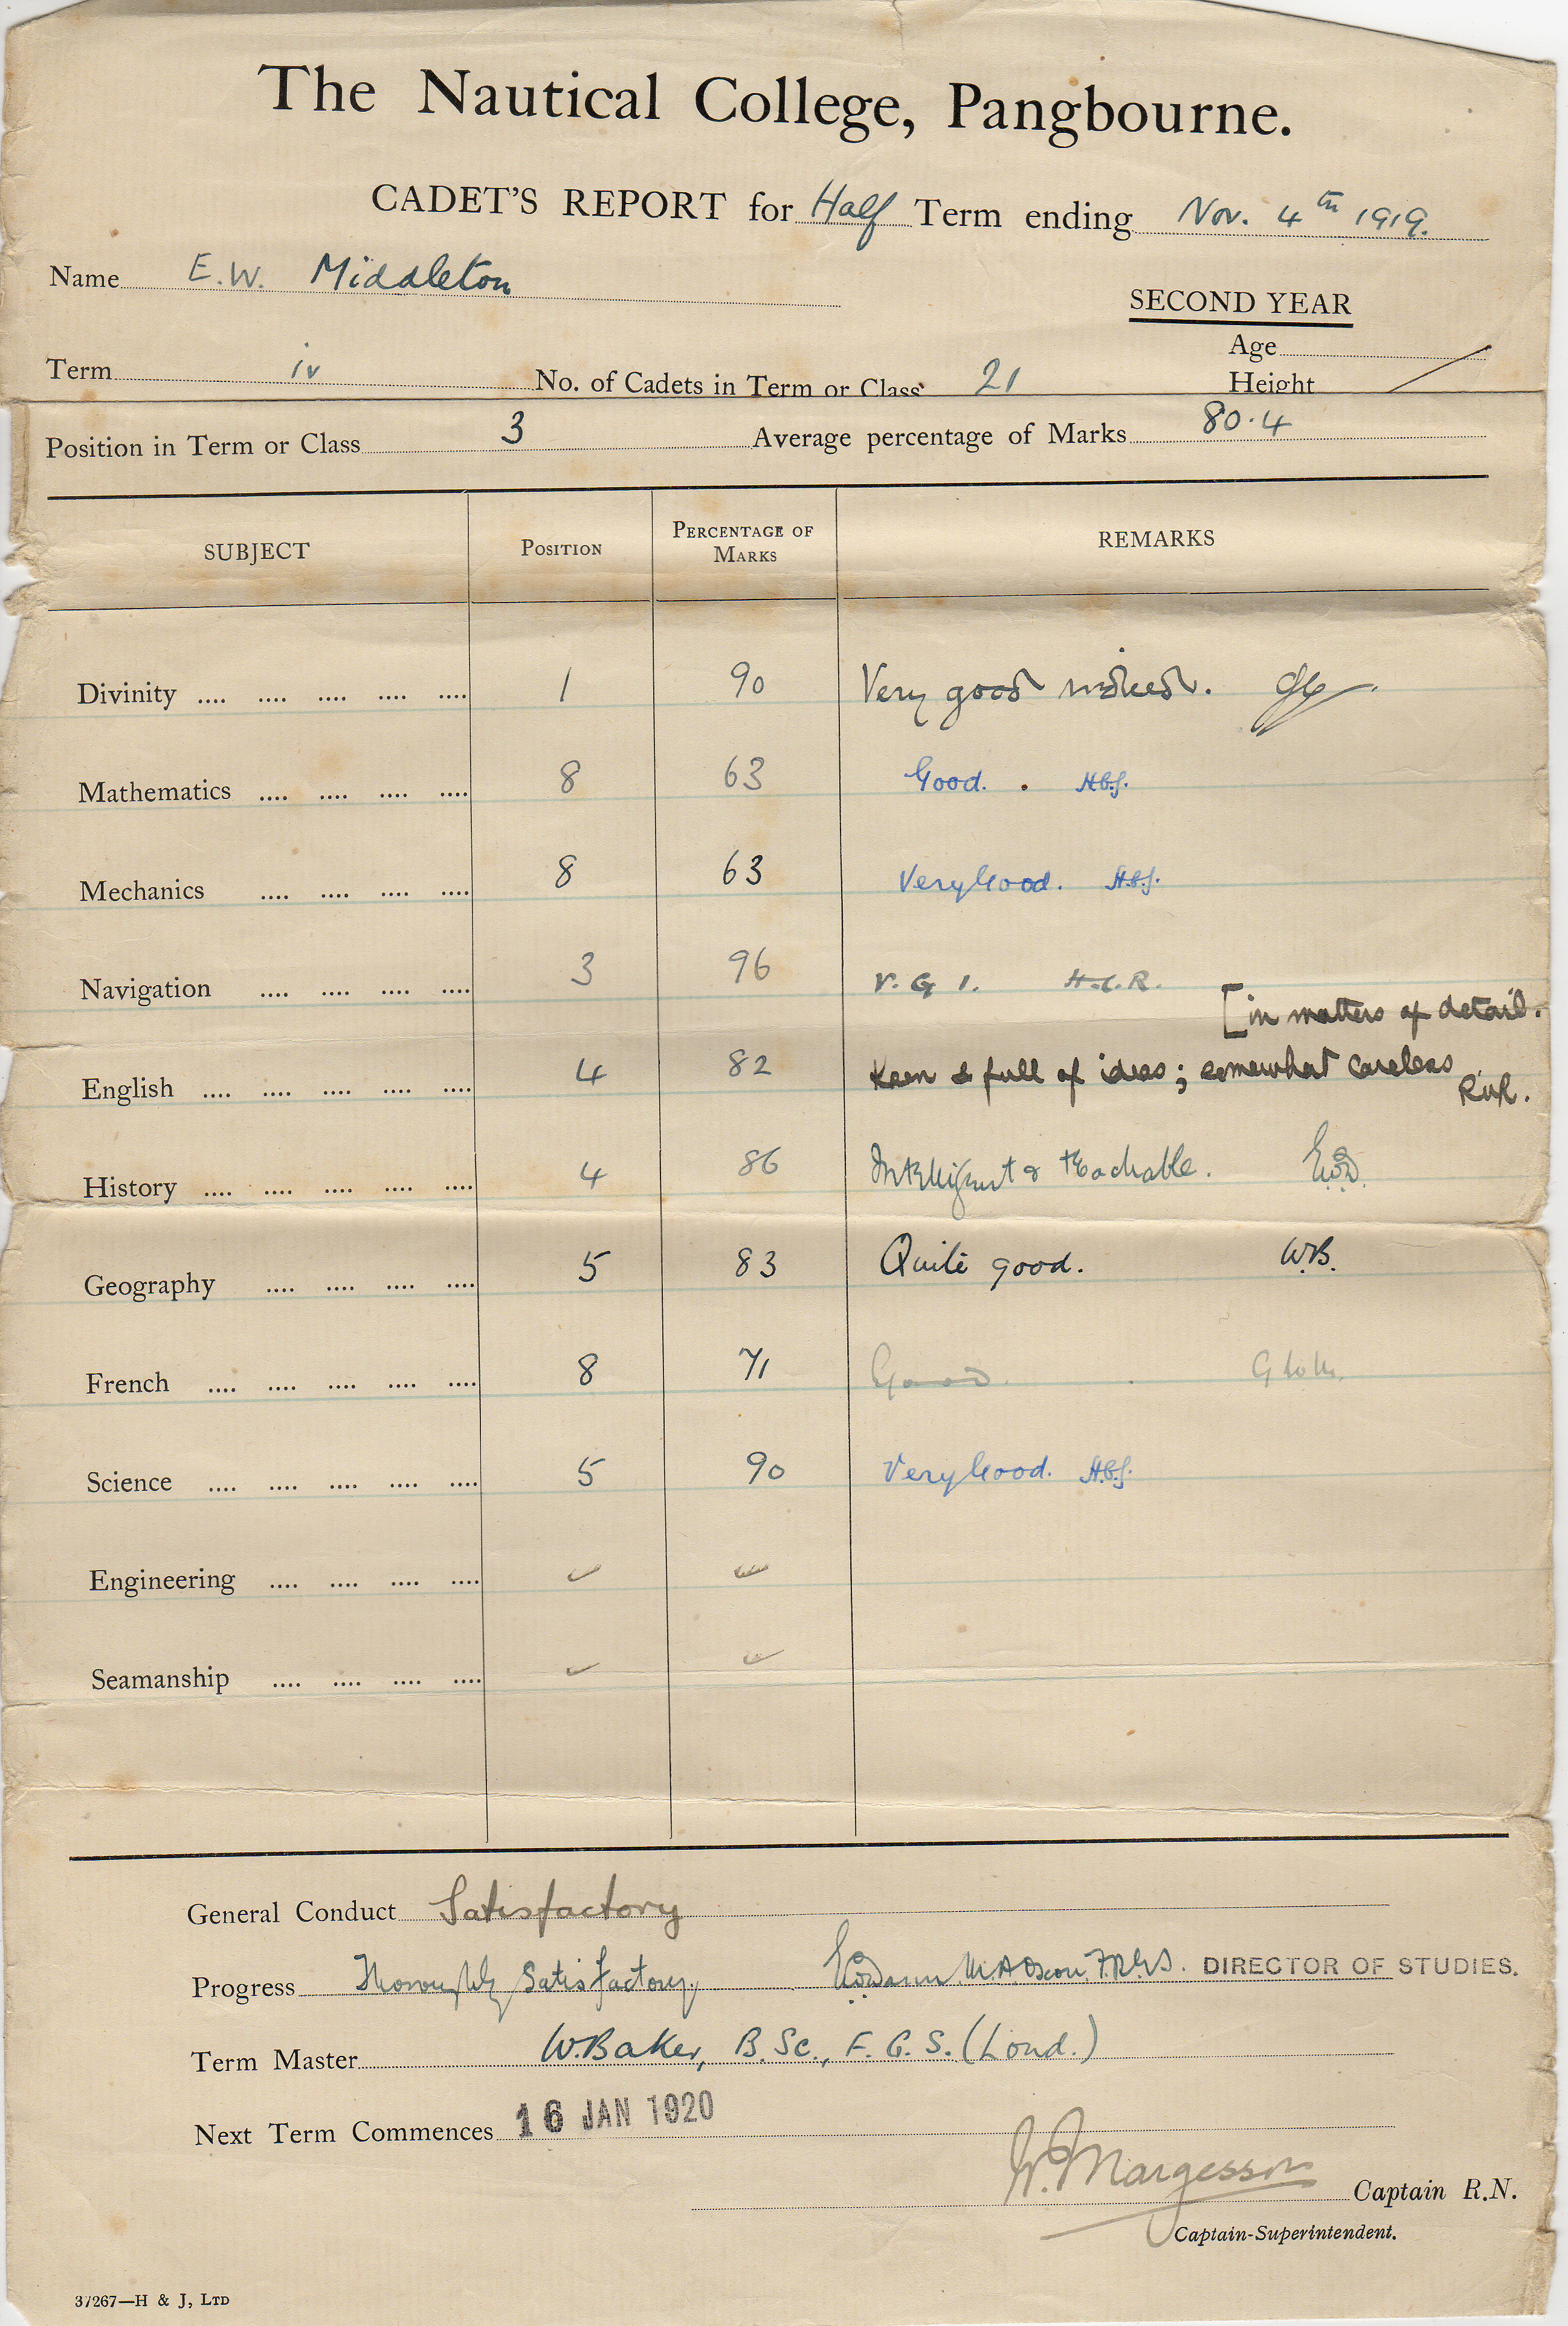 The Nautical College, Pangbourne.
CADET'S REPORT for Half Term ending Nov. 4th 1919.
Name E.W. Middleton
SECOND YEAR
Age
Term iv No. of Cadets in Term or Class 21 Height
Position in Term or Class 3 Average percentage of Marks 80.4
SUBJECT POSITION PERCENTAGE OF MARKS REMARKS
Divinity .... .... .... .... .... 1 90 Very good indeed.
Mathematics .... .... .... .... 8 63 Good. H.C.J.
Mechanics .... .... .... .... 8 63 Very Good. H.C.J.
Navigation .... .... .... .... 3 96 V. G 1. H.C.R.
[in matters of detail.
English .... .... .... .... .... 4 82 Keen & full of ideas; somewhat careless
History .... .... .... .... .... 4 86 Intelligent & teachable.
Geography .... .... .... .... 5 83 Quite good. W.B.
French .... .... .... .... .... 8 71 Good.
Science .... .... .... .... .... 5 90 Very Good. H.C.J.
Engineering .... .... .... ....
Seamanship .... .... .... ....
General Conduct Satisfactory
Progress Thoroughly Satisfactory. M.A. Oxon. F.R.G.S. DIRECTOR OF STUDIES.
Term Master W. Baker, B.Sc., F.G.S. (Lond.)
Next Term Commences 16 JAN 1920
W. Margesson Captain R.N.
Captain-Superintendent.
37267—H & J, LTD